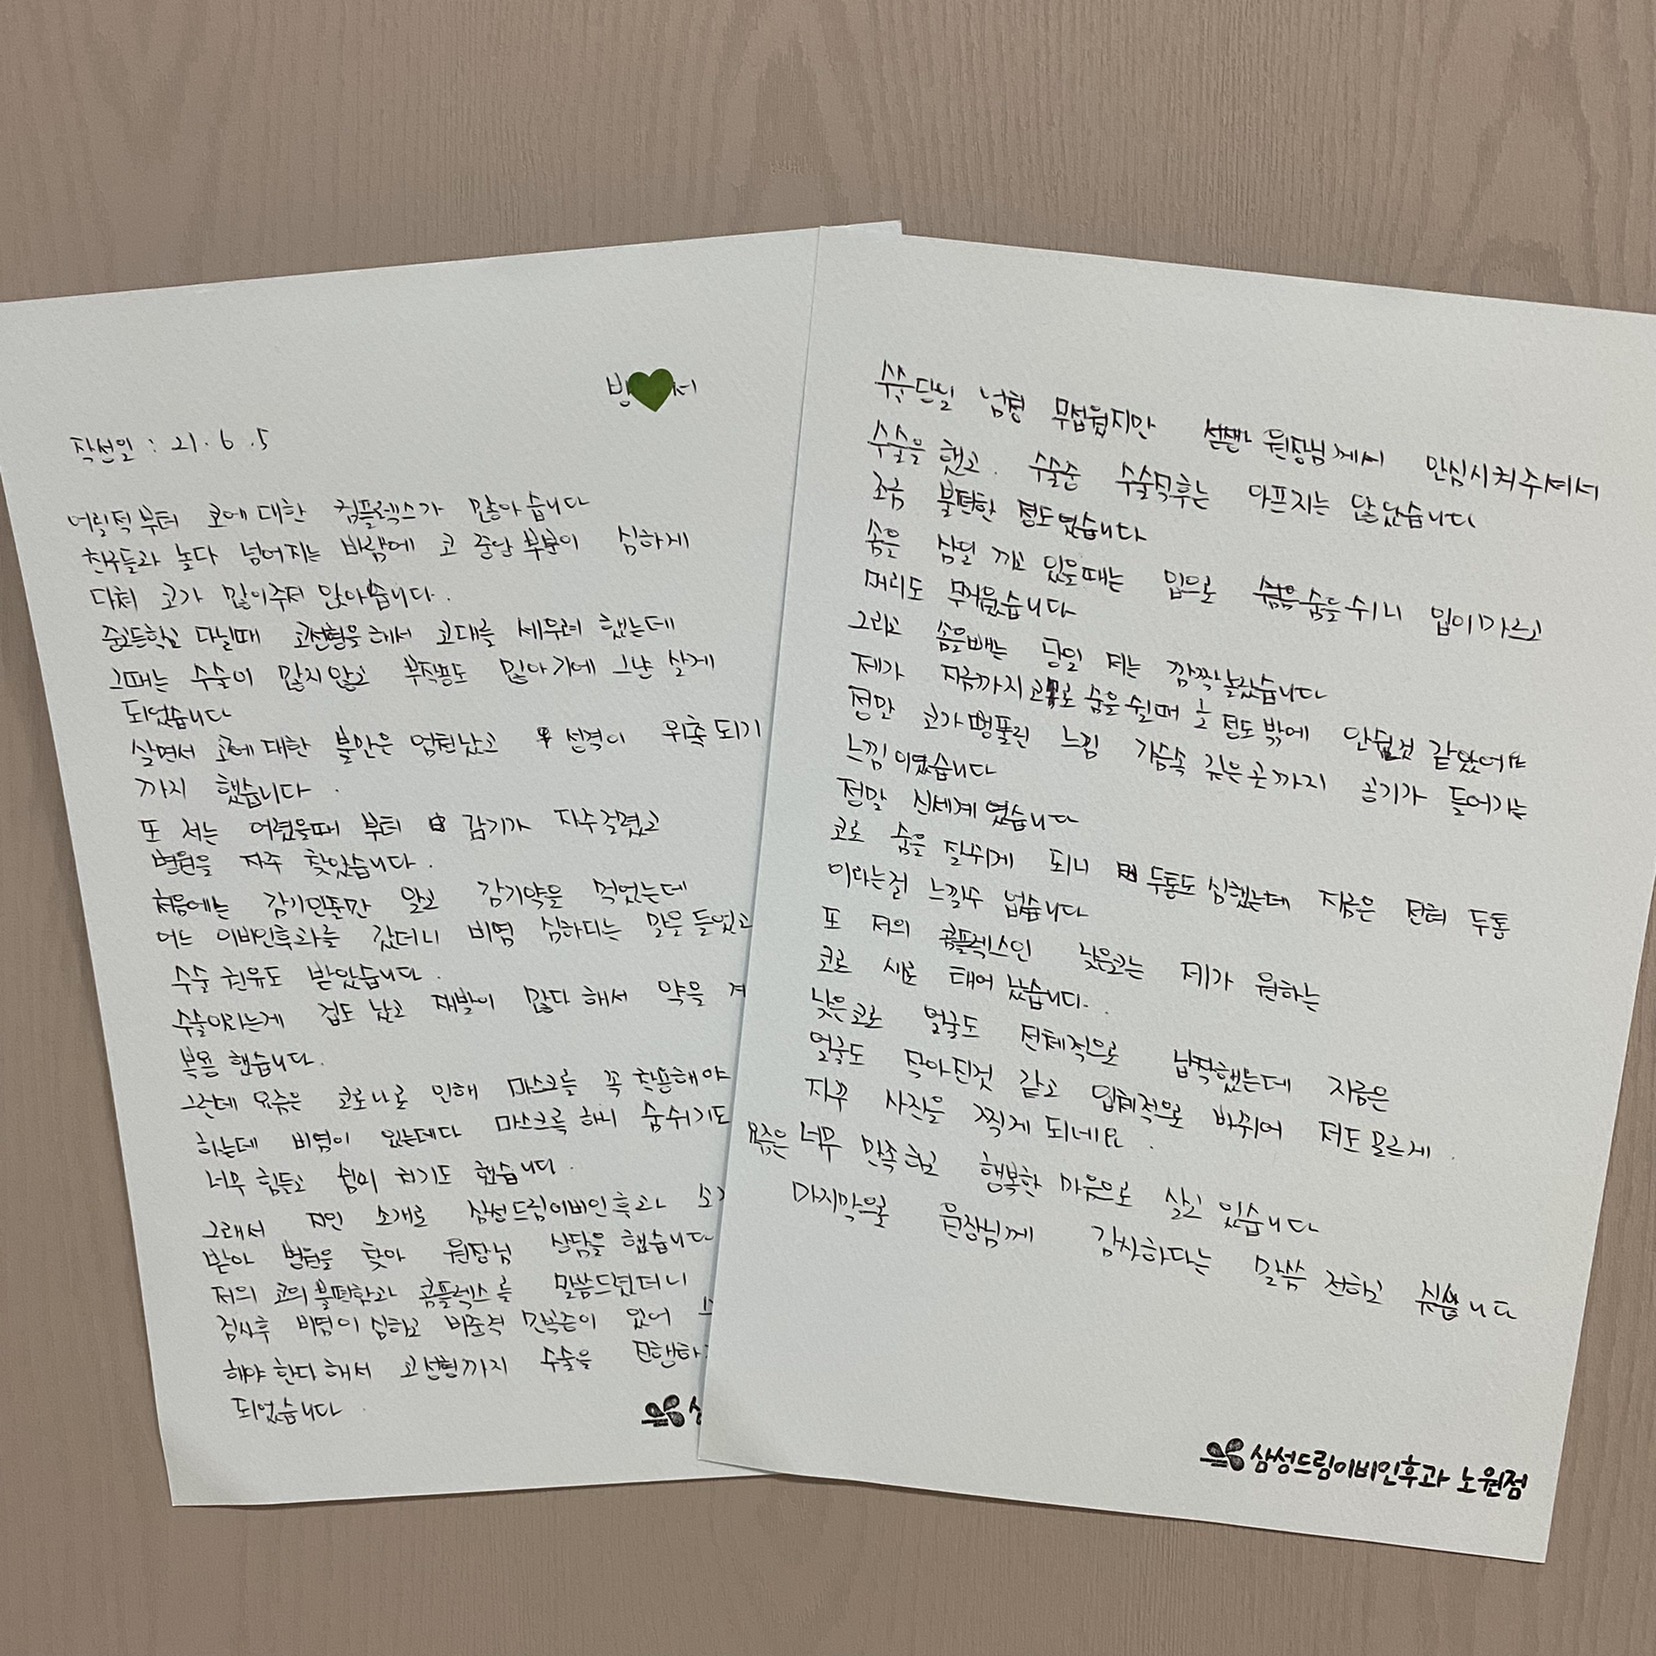 방 서
작성일 : 21.6.5
어릴적부터 코에대한 컴플렉스가 많아습니다
친구들과 놀다 넘어지는 바람에 코 중앙부분이 심하게
다쳐 코가 많이주저 앉아습니다.
중고등학교 다닐때 코성형을해서 코대를 세우려 했는데
그때는 수술이 많지않고 부작용도 많아기에 그냥 살게
되었습니다
살면서 코에대한 불안은 엄청났고 성격이 위축되기
까지 했습니다.
또 저는 어렸을때 부터 감기가 자주걸렸고
병원을 자주 찾았습니다.
처음에는 감기인줄만 알고 감기약을 먹었는데
어느 이비인후과를 갔더니 비염 심하다는 말을들었고
수술권유도 받았습니다.
수술이라는게 겁도났고 재발이 많다해서 약을
복용했습니다.
그런데 요즘은 코로나로 인해 마스크를 꼭착용해야
하는데 비염이 있는데다 마스크를하니 숨쉬기도
너무힘들고 숨이 차기도 했습니다.
그래서 지인 소개로 삼성드림이비인후과
받아 병원을 찾아 원장님 상담을했습니다
저의 코의불편함과 콤플렉스를 말씀드렸더니
검사후 비염이심하고 비중격 만곡증이 있어
해야한다해서 코성형까지 수술을
되었습니다.
수술당일 넘 무섭웠지만 원장님께서 안심시켜주셔서
수술을했고. 수술후는 아프지는 않았습니다
조금 불편한 정도였습니다
솜을 3일 끼고 있을때는 입으로 숨을쉬니 입이마르고
머리도 무거웠습니다
그리고 솜을빼는 당일 저는 깜짝놀랐습니다
제가 지금까지코로 숨을쉴때 ½ 정도밖에 안쉰것 같았어요
정말 코가뻥뚫린 느낌 가슴속 깊은곳까지 공기가 들어가는
느낌이였습니다
정말 신세계였습니다
코로 숨을 잘쉬게 되니 두통도심했는데 지금은 전혀 두통
이라는걸 느낄수 없습니다
또 저의 콤플렉스인 낮은코는 제가 원하는
코로 새로 태어났습니다.
낮은코로 얼굴도 전체적으로 납작했는데 지금은
얼굴도 작아진것 같고 입체적으로 바뀌어 저도모르게.
자꾸 사진을 찍게되네요.
요즘은너무 만족하고 행복한 마음으로 살고 있습니다
마지막으로 원장님께 감사하다는 말씀 전하고 싶습니다
삼성드림이비인후과 노원점